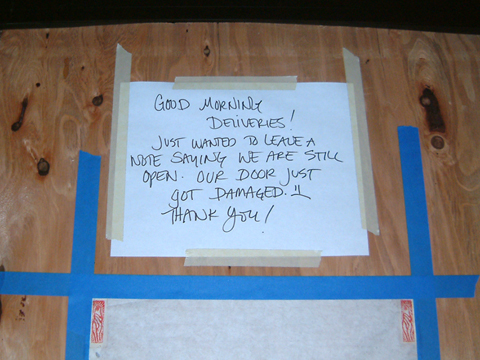 GOOD MORNING
DELIVERIES!
JUST WANTED TO LEAVE A
NOTE SAYING WE ARE STILL
OPEN. OUR DOOR JUST
GOT DAMAGED. =(
THANK YOU!